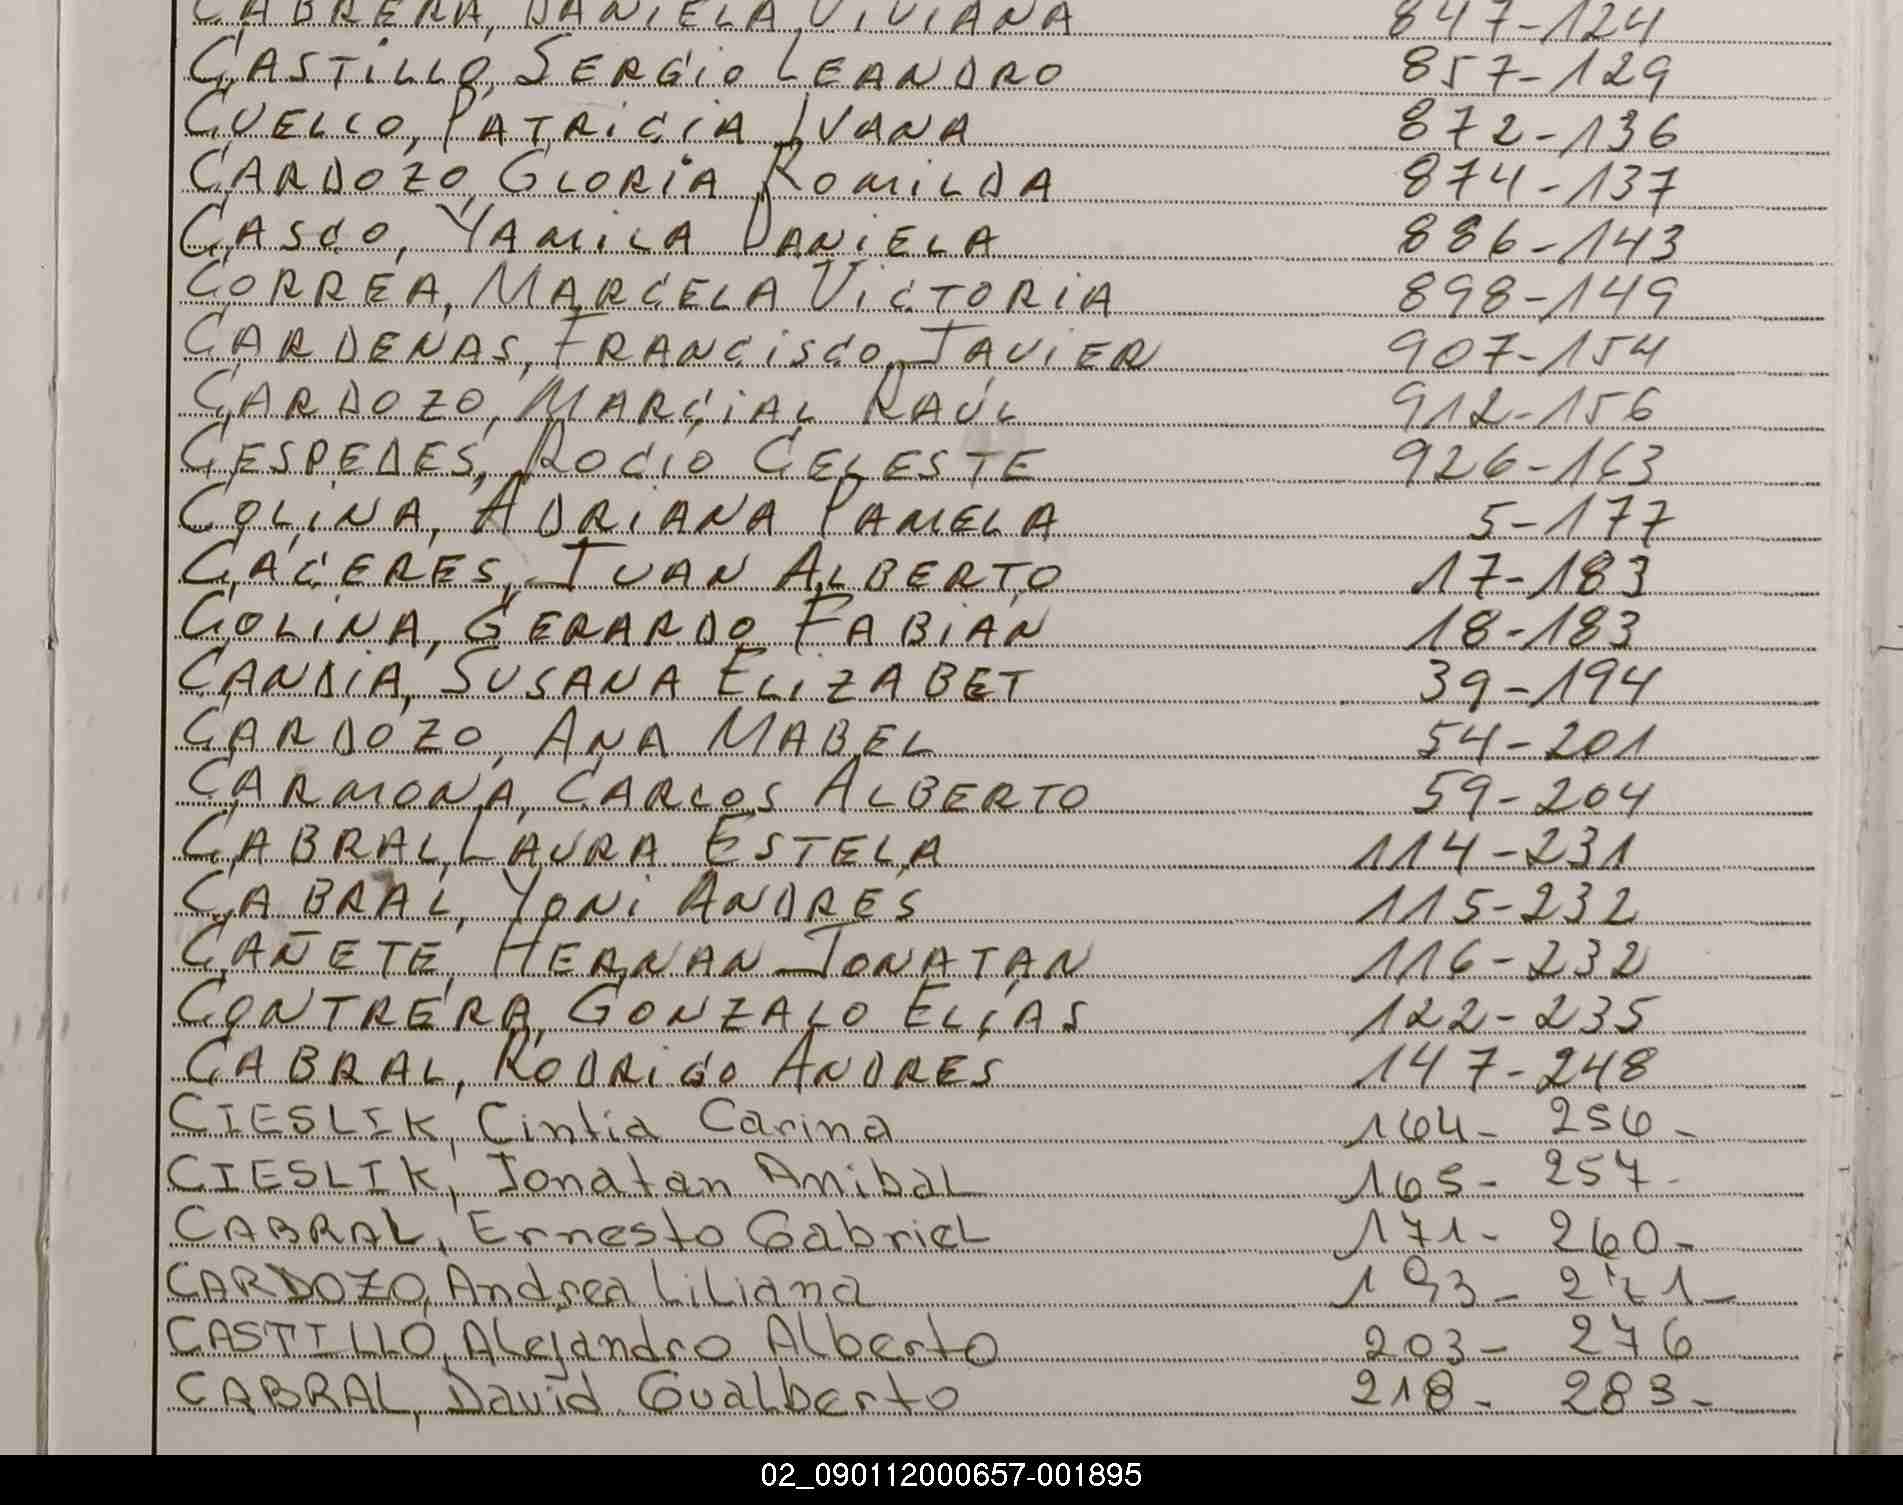 CABRERA, DANIELA VIVIANA 847-124
CASTILLO, SERGIO LEANDRO 857-129
CUELLO, PATRICIA IVANA 872-136
CARDOZO, GLORIA ROMILDA 874-137
CASCO, YAMILA DANIELA 886-143
CORREA, MARCELA VICTORIA 898-149
CARDENAS, FRANCISCO JAVIER 907-154
CARDOZO, MARCIAL RAÚL 912-156
CESPEDES, ROCÍO CELESTE 926-163
COLINA, ADRIANA PAMELA 5-177
CÁCERES, JUAN ALBERTO 17-183
COLINA, GERARDO FABIÁN 18-183
CANDIA, SUSANA ELIZABET 39-194
CARDOZO, ANA MABEL 54-201
CARMONA, CARLOS ALBERTO 59-204
CABRAL, LAURA ESTELA 114-231
CABRAL, YONI ANDRES 115-232
CAÑETE, HERNAN JONATAN 116-232
CONTRERA, GONZALO ELÍAS 122-235
CABRAL, RODRIGO ANDRES 147-248
CIESLIK, Cintia Carina 164- 256-
CIESLIK, Jonatan Anibal 165- 257-
CABRAL, Ernesto Gabriel 171- 260-
CARDOZO, Andrea Liliana 193- 271-
CASTILLO, Alejandro Alberto 203- 276
CABRAL, David Gualberto 218- 283-
02_090112000657-001895